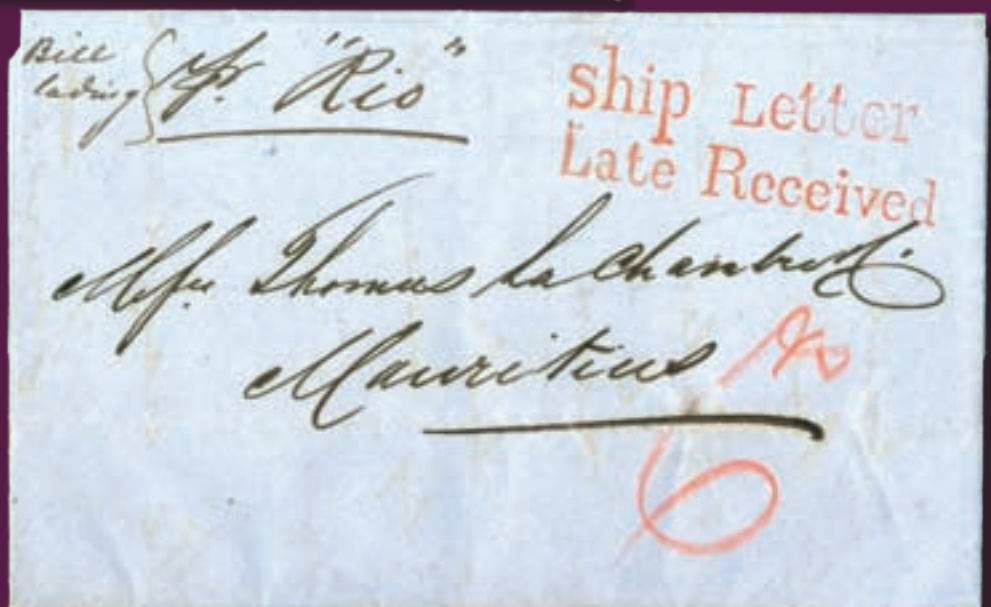 Bill
lading } pr. "Rio"
Ship Letter
Late Received
Messrs Thomas Lachambre
Mauritius
6